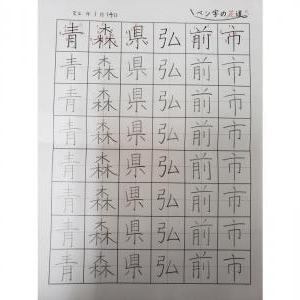 年1月14日
ペン字の
青森県弘前市
青森県弘前市
青森県弘前市
青森県弘前市
青森県弘前市
青森県弘前市
青森県弘前市
青森県弘前市